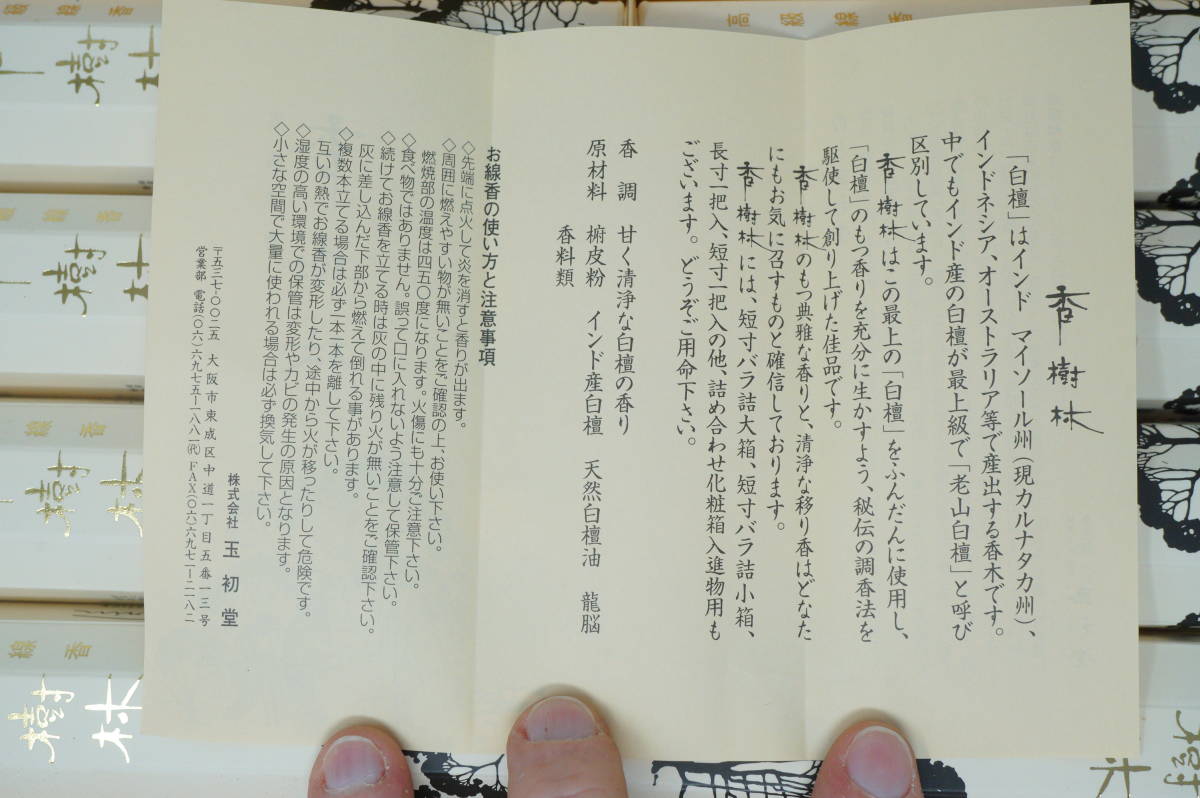 香樹林
「白檀」はインド マイソール州(現カルナタカ州)、
インドネシア、オーストラリア等で産出する香木です。
中でもインド産の白檀が最上級で「老山白檀」と呼び
区別しています。
香樹林はこの最上の「白檀」をふんだんに使用し、
「白檀」のもつ香りを充分に生かすよう、秘伝の調香法を
駆使して創り上げた佳品です。
香樹林のもつ典雅な香りと、清浄な移り香はどなた
にもお気に召すものと確信しております。
香樹林には、短寸バラ詰大箱、短寸バラ詰小箱、
長寸一把入、短寸一把入の他、詰め合わせ化粧箱入進物用も
ございます。どうぞご用命下さい。
香 調 甘く清浄な白檀の香り
原材料 椨皮粉 インド産白檀 天然白檀油 龍脳
香料類
お線香の使い方と注意事項
◇先端に点火して炎を消すと香りが出ます。
◇周囲に燃えやすい物が無いことをご確認の上、お使い下さい。
燃焼部の温度は四五〇度になります。火傷にも十分ご注意下さい。
◇食べ物ではありません。誤って口に入れないよう注意して保管下さい。
◇続けてお線香を立てる時は灰の中に残り火が無いことをご確認下さい。
灰に差し込んだ下部から燃えて倒れる事があります。
◇複数本立てる場合は必ず一本一本を離して下さい。
互いの熱でお線香が変形したり、途中から火が移ったりして危険です。
◇湿度の高い環境での保管は変形やカビの発生の原因となります。
◇小さな空間で大量に使われる場合は必ず換気して下さい。
株式会社 玉初堂
〒五三七-〇〇二五 大阪市東成区中道一丁目五番一三号
営業部 電話(〇六)六九七五-一八八一(代) FAX(〇六)六九七一-二一八二
高級線香
樹林
樹林
線香
樹林
線香
樹林